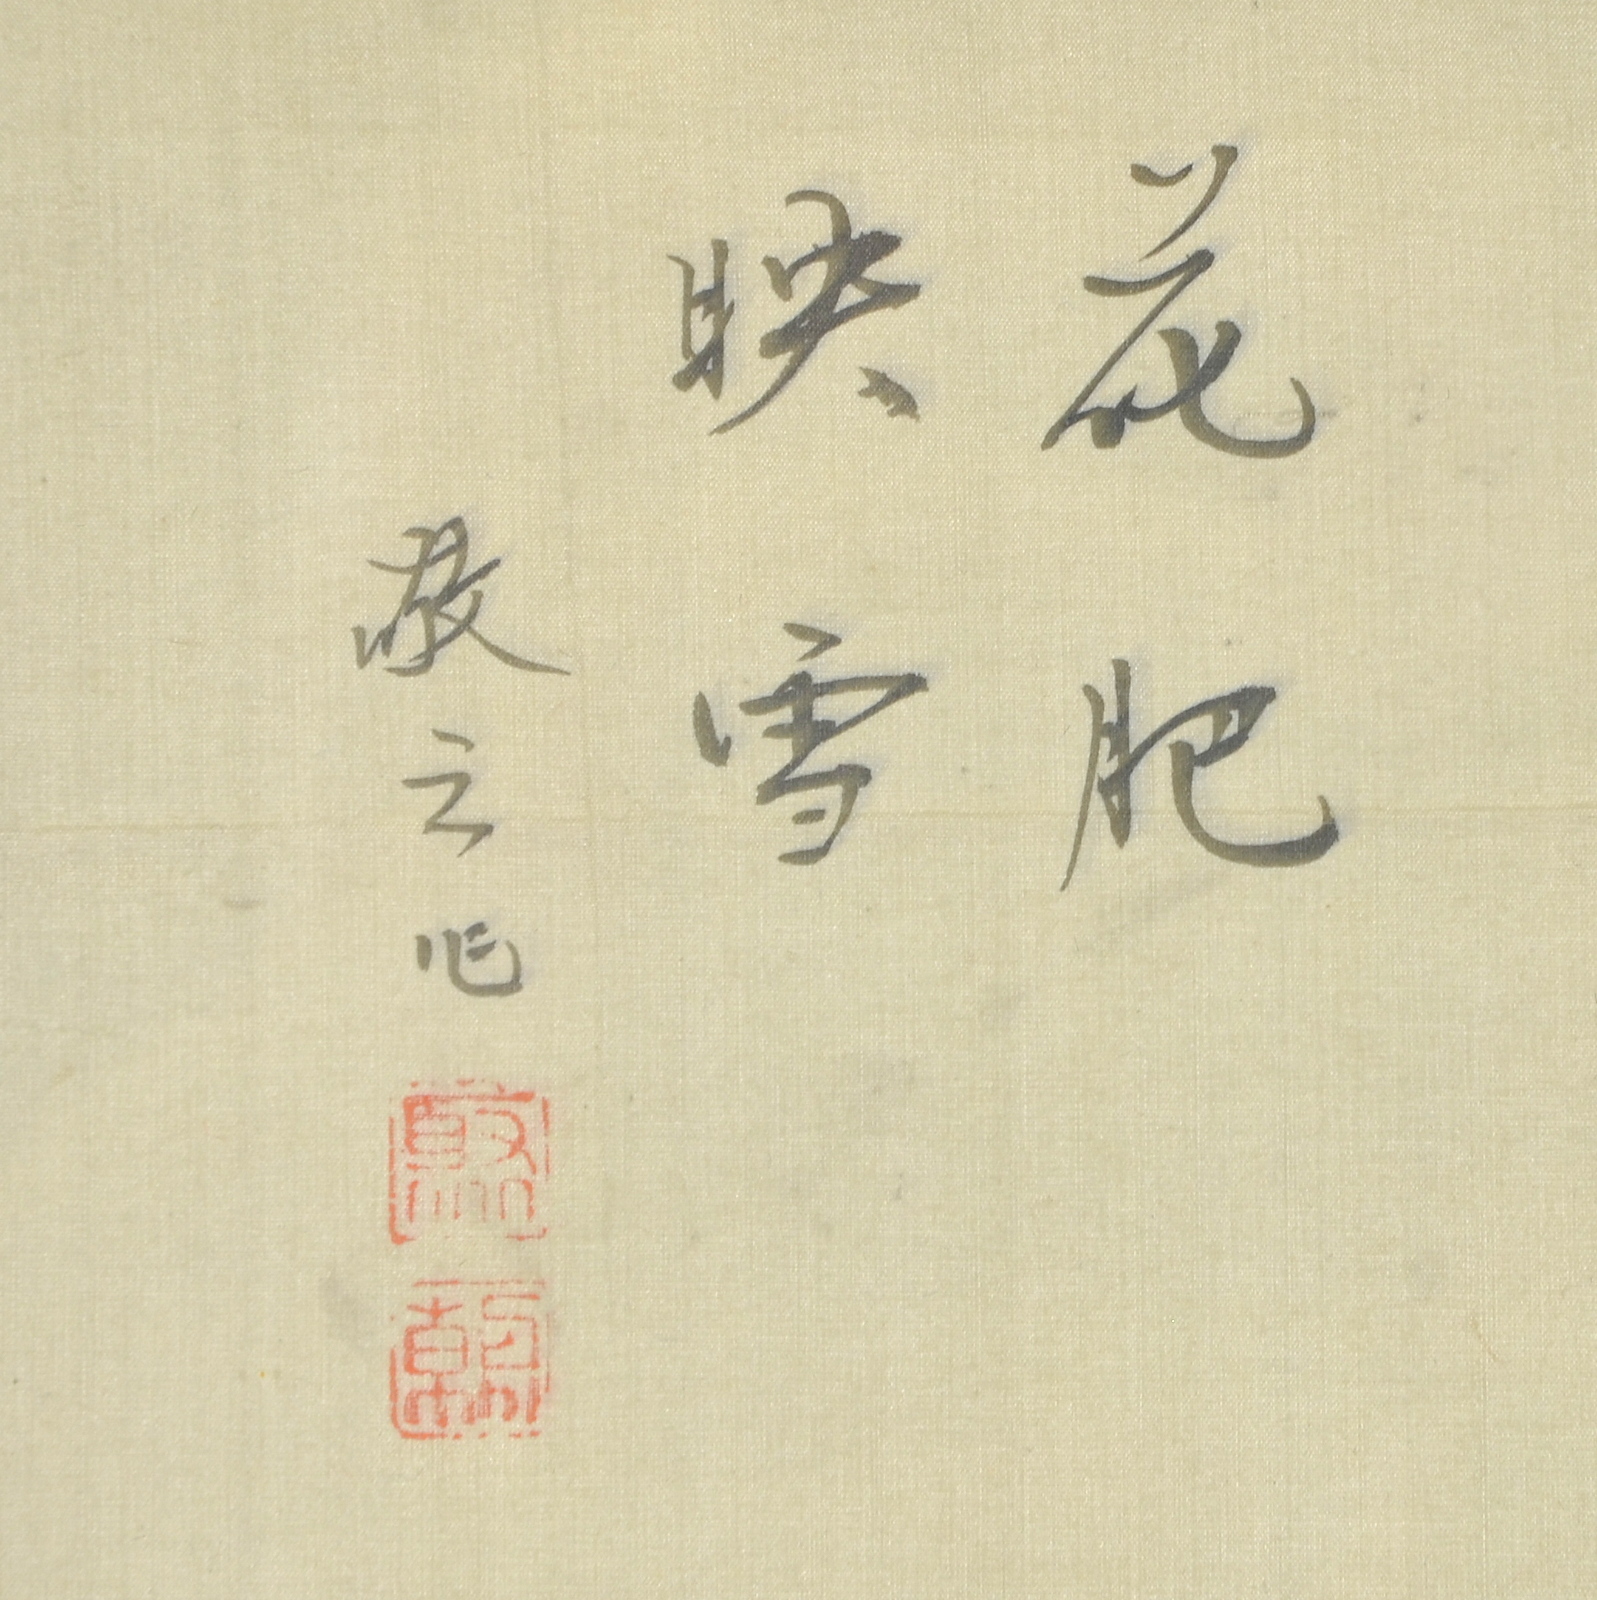 花肥
映雪
之作